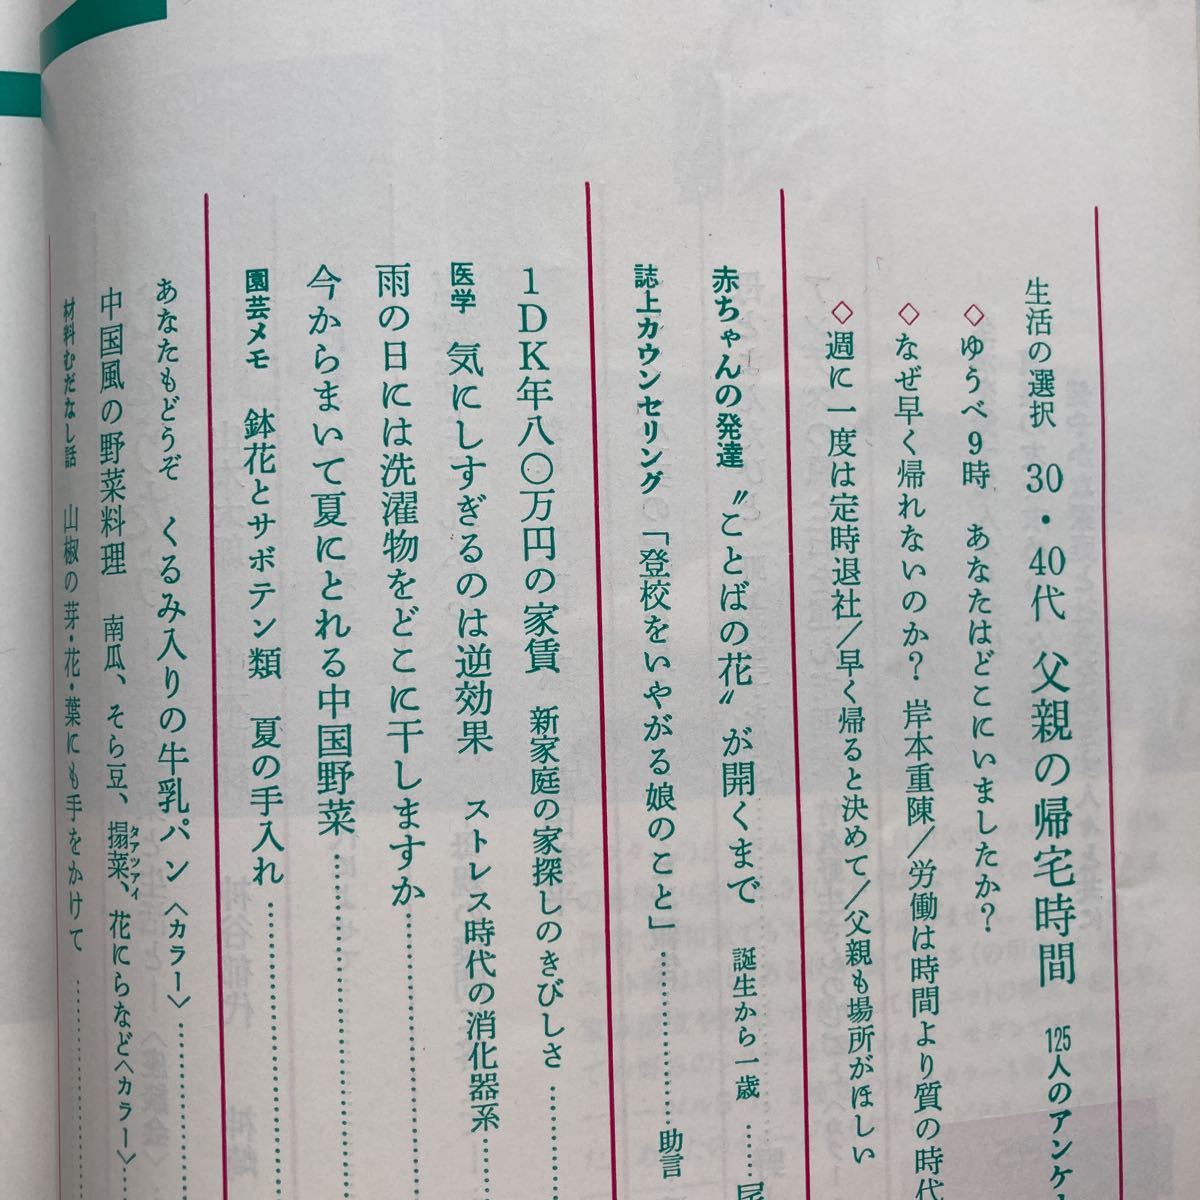 生活の選択　30・40代　父親の帰宅時間　125人のアンケ
◇ゆうべ9時　あなたはどこにいましたか？
◇なぜ早く帰れないのか？　岸本重陳/労働は時間より質の時代
◇週に一度は定時退社/早く帰ると決めて/父親も場所がほしい
赤ちゃんの発達　〝ことばの花〟が開くまで　誕生から一歳……
誌上カウンセリング　「登校をいやがる娘のこと」…………助言
1DK年八〇万円の家賃　新家庭の家探しのきびしさ……
医学　気にしすぎるのは逆効果　ストレス時代の消化器系……
雨の日には洗濯物をどこに干しますか…………
今からまいて夏にとれる中国野菜…………
園芸メモ　鉢花とサボテン類　夏の手入れ…………
あなたもどうぞ　くるみ入りの牛乳パン〈カラー〉……
中国風の野菜料理　南瓜、そら豆、搨菜、花にらなど〈カラー〉……
タアツァイ
材料むだなし話　山椒の芽・花・葉にも手をかけて…………